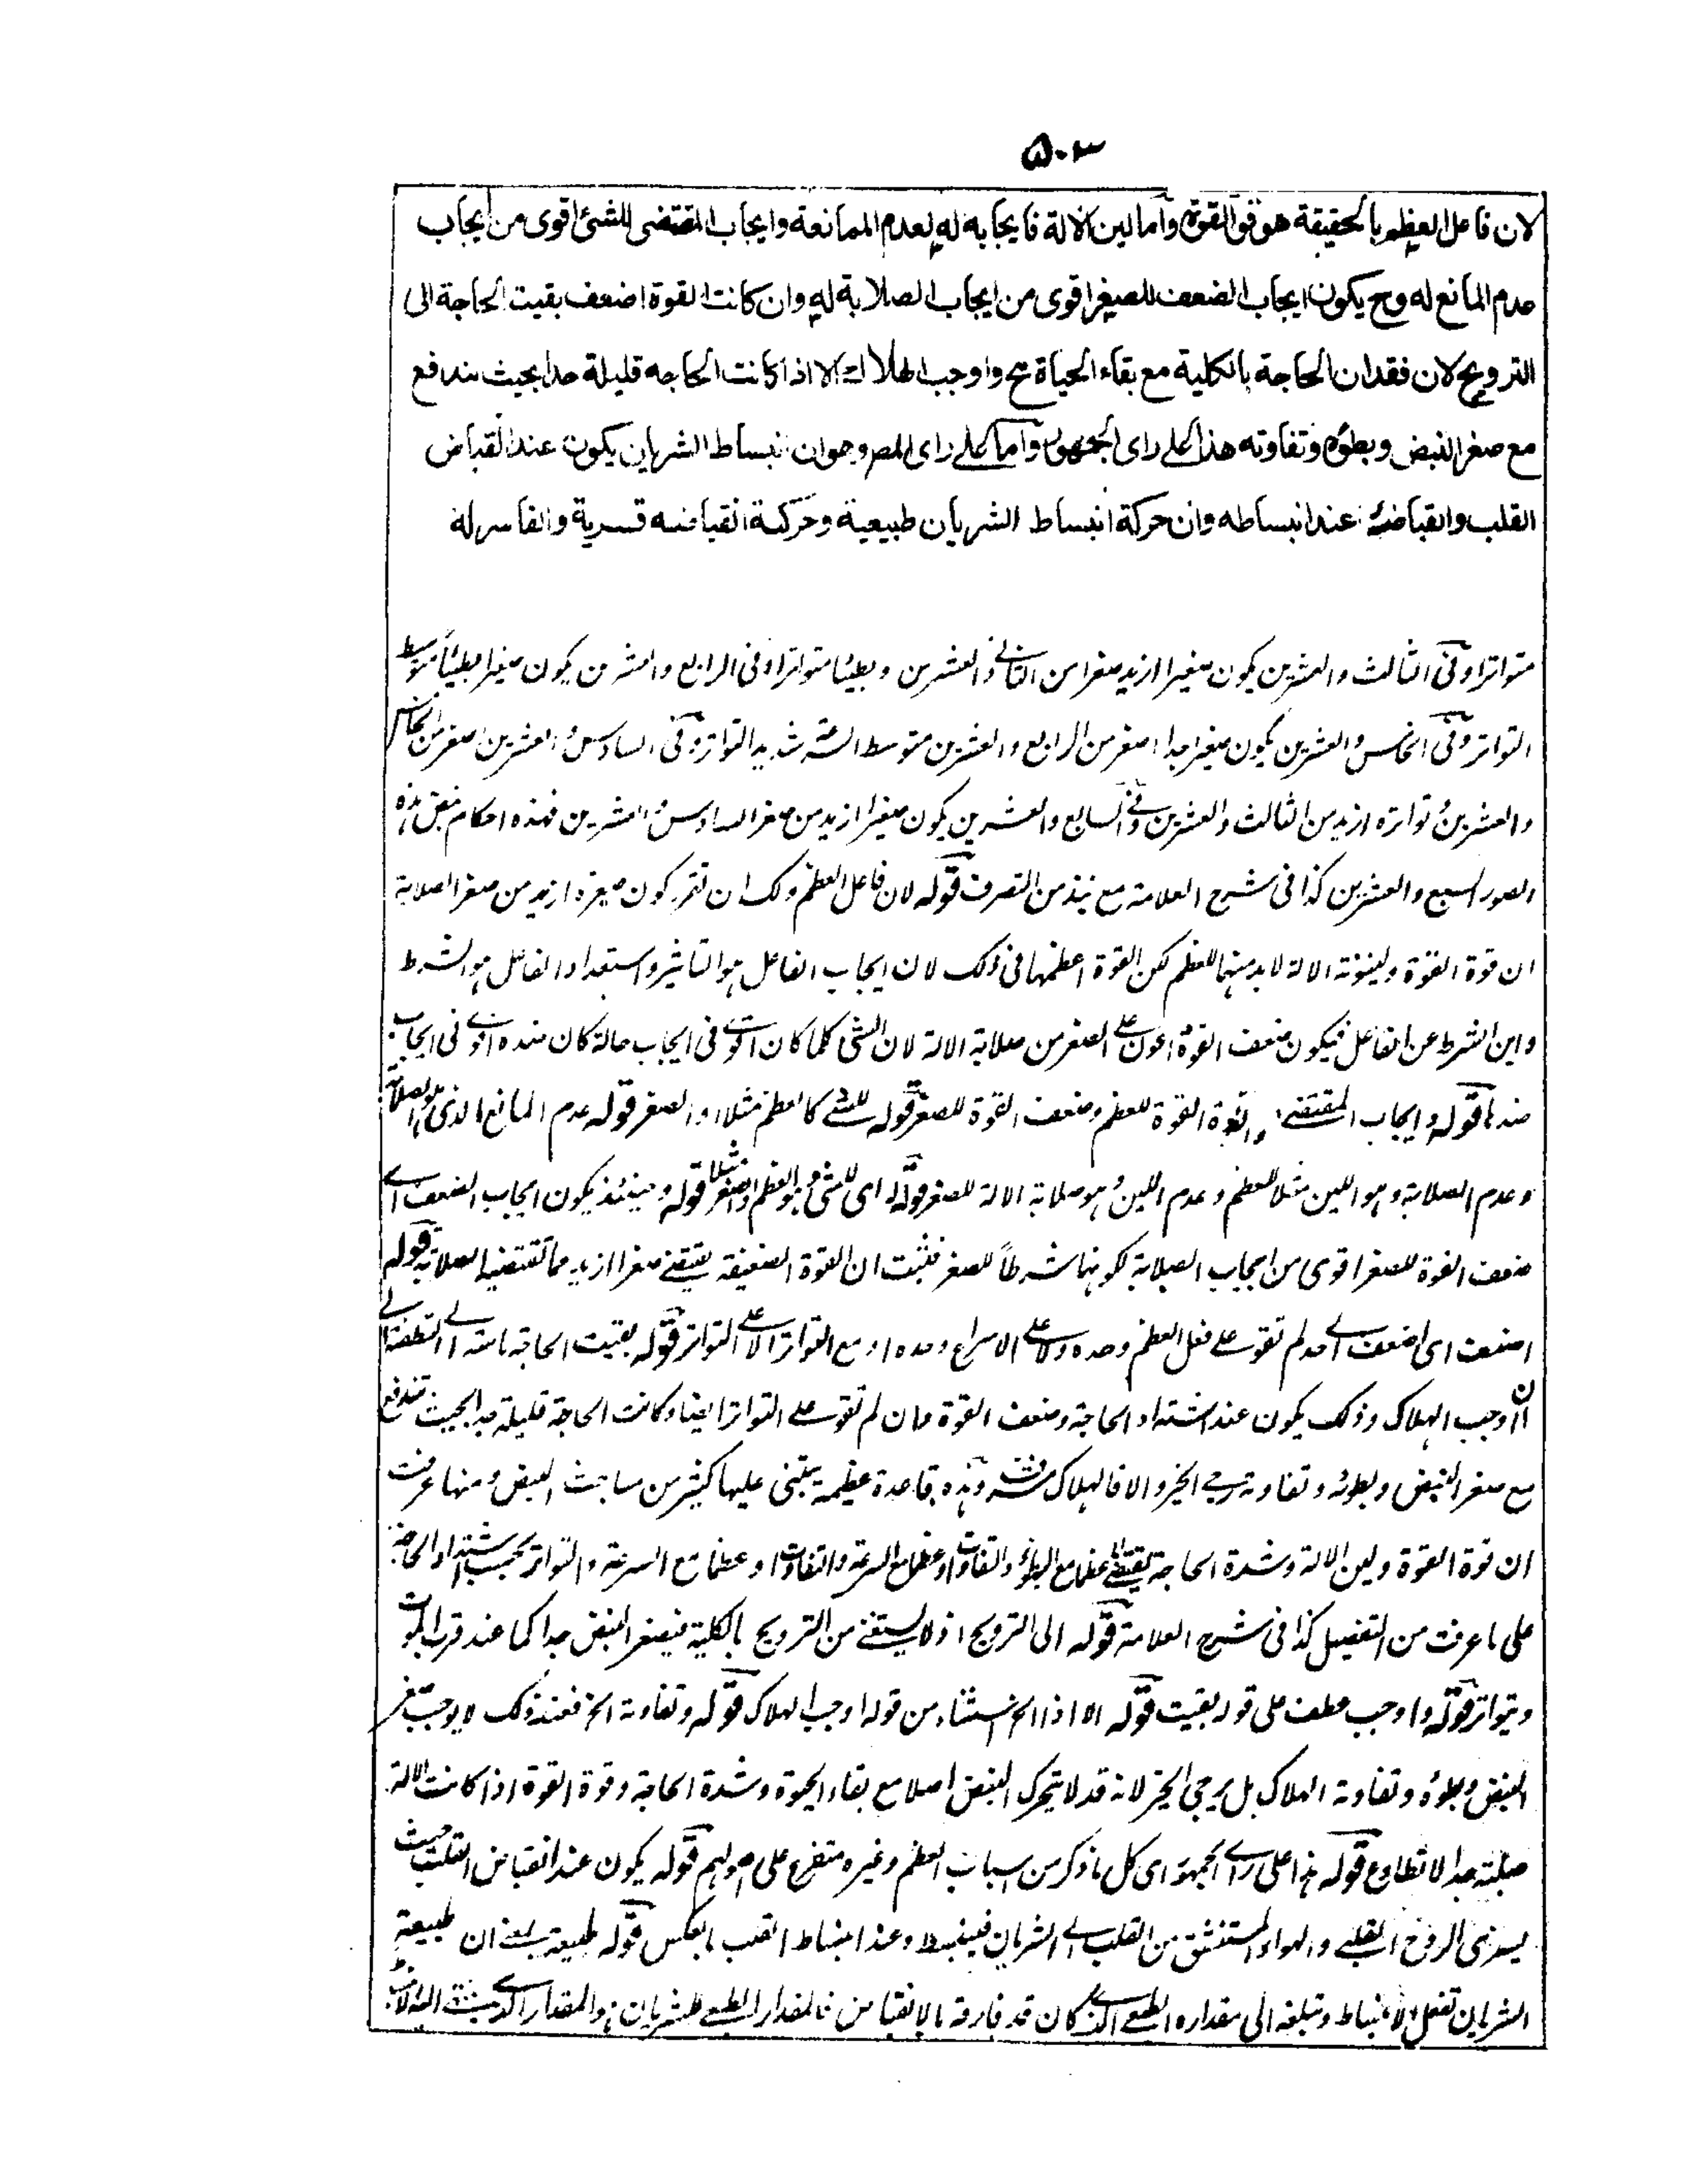 ۵۰۳
لان فاعل العظم بالحقيقة هو قوة القوة وآما لين الآلة فايجابه له لعدم الممانعة وايجاب المقتضى للشئ اقوى من ايجاب
عدم المانع له وح يكون ايجاب الضعف للصغر اقوى من ايجاب الصلابة له وان كانت القوة اضعف بقيت الحاجة الى
الترويح لان فقدان الحاجة بالكلية مع بقاء الحياة مح واوجب الهلاك الا اذا كانت الحاجه قليلة جدا بحيث يندفع
مع صغر النبض وبطؤه وتفاوته هذا على راى الجمهور وآما على راى المصر وهو ان انبساط الشريان يكون عند انقباض
القلب وانقباضه عند انبساطه وان حركة انبساط الشريان طبيعية وحركة انقباضه قسرية والقاسر له
متواترا وفى الثالث والعشرين يكون صغيرا ازيد صغرا من الثانى والعشرين وبطيئا متواترا وفى الرابع والعشرين يكون صغيرا بطيئا متوسط
التواتر وفى الخامس والعشرين يكون صغيرا جدا اصغر من الرابع والعشرين متوسط السرعة شديد التواتر وفى السادس والعشرين اصغر من الخامس
والعشرين وتواتره ازيد من الثالث والعشرين وفى السابع والعشرين يكون صغيرا ازيد من صغر السادس والعشرين فهذه احكام نبض هذه
الصور السبع والعشرين كذا فى شرح العلامة مع نبذ من التصرف قوله لان فاعل العظم ولك ان تقرر كون صغره ازيد من صغر الصلابة
ان قوة القوة ولينونة الالة لا بد منهما للعظم لكن القوة اعظمها فى ذلك لان ايجاب الفاعل هو التاثير واستعداد الفاعل هو الشرط
واين الشرط عن الفاعل فيكون ضعف القوة اعون على الصغر من صلابة الالة لان الشئ كلما كان اقوى فى ايجاب حالة كان ضده اقوى فى ايجاب
ضدها قوله وايجاب المقتضى وقوة القوة للعظم وضعف القوة للصغر قوله للشئ كالعظم مثلا او الصغر قوله عدم المانع الذى هو الصلابة
وعدم الصلابة وهو اللين مثلا للعظم وعدم اللين وهو صلابة الالة للصغر قوله له اى للشئ وهو العظم والصغر مثلا قوله وحينئذ يكون ايجاب الضعف اى
ضعف القوة للصغر اقوى من ايجاب الصلابة لكونها شرطاً للصغر فثبت ان القوة الضعيفة يقتضى صغرا ازيد مما تقتضيه الصلابة قوله
اضعف اى اضعف الى حد لم تقو على فعل العظم وحده ولا على الاسراع وحده او مع التواتر الا على التواتر قوله بقيت الحاجة ماسة الى التطفئة الى
ان اوجب الهلاك وذلك يكون عند اشتداد الحاجة وضعف القوة وان لم تقو على التواتر ايضا وكانت الحاجة قليلة جدا بحيث تندفع
مع صغر النبض وبطوئه وتفاوته يرجى الخير والا فالهلاك وهذه قاعدة عظيمة يبتنى عليها كثير من مباحث النبض ومنها عرفت
ان قوة القوة ولين الالة وشدة الحاجة يقتضى عظما مع البطؤ والتفاوت او عظما مع السرعة والتفاوت او عظما مع السرعة والتواتر بحسب اشتداد الحاجة
على ما عرفت من التفصيل كذا فى شرح العلامة قوله الى الترويح اذ لا يستغنى من الترويح بالكلية فيصغر النبض جدا كما عند قرب الموت
ويتواتر قوله واوجب عطف على قوله بقيت قوله الا اذا الخ استثناء من قوله اوجب الهلاك قوله وتفاوته الخ فعند ذلك لا يوجب صغر
النبض وبطؤه وتفاوته الهلاك بل يرجى الخير لانه قد لا يتحرك النبض اصلا مع بقاء الحيوة وشدة الحاجة وقوة القوة اذا كانت الالة
صلبة جدا لا تطاوع قوله هذا على راى الجمهور اى كل ما ذكر من اسباب العظم وغيره متفرع على اصولهم قوله يكون عند انقباض القلب حيث
يسرى الروح القلبى والهواء المستنشق من القلب الى الشريان فينبسط وعند انبساط القلب بالعكس قوله طبيعية يعنى ان طبيعة
الشريان تفعل الانبساط وتبلغه الى مقداره الطبعى الذى كان قد فارقه بالانقباض فالمقدار الطبعى للشريان هو المقدار الذى